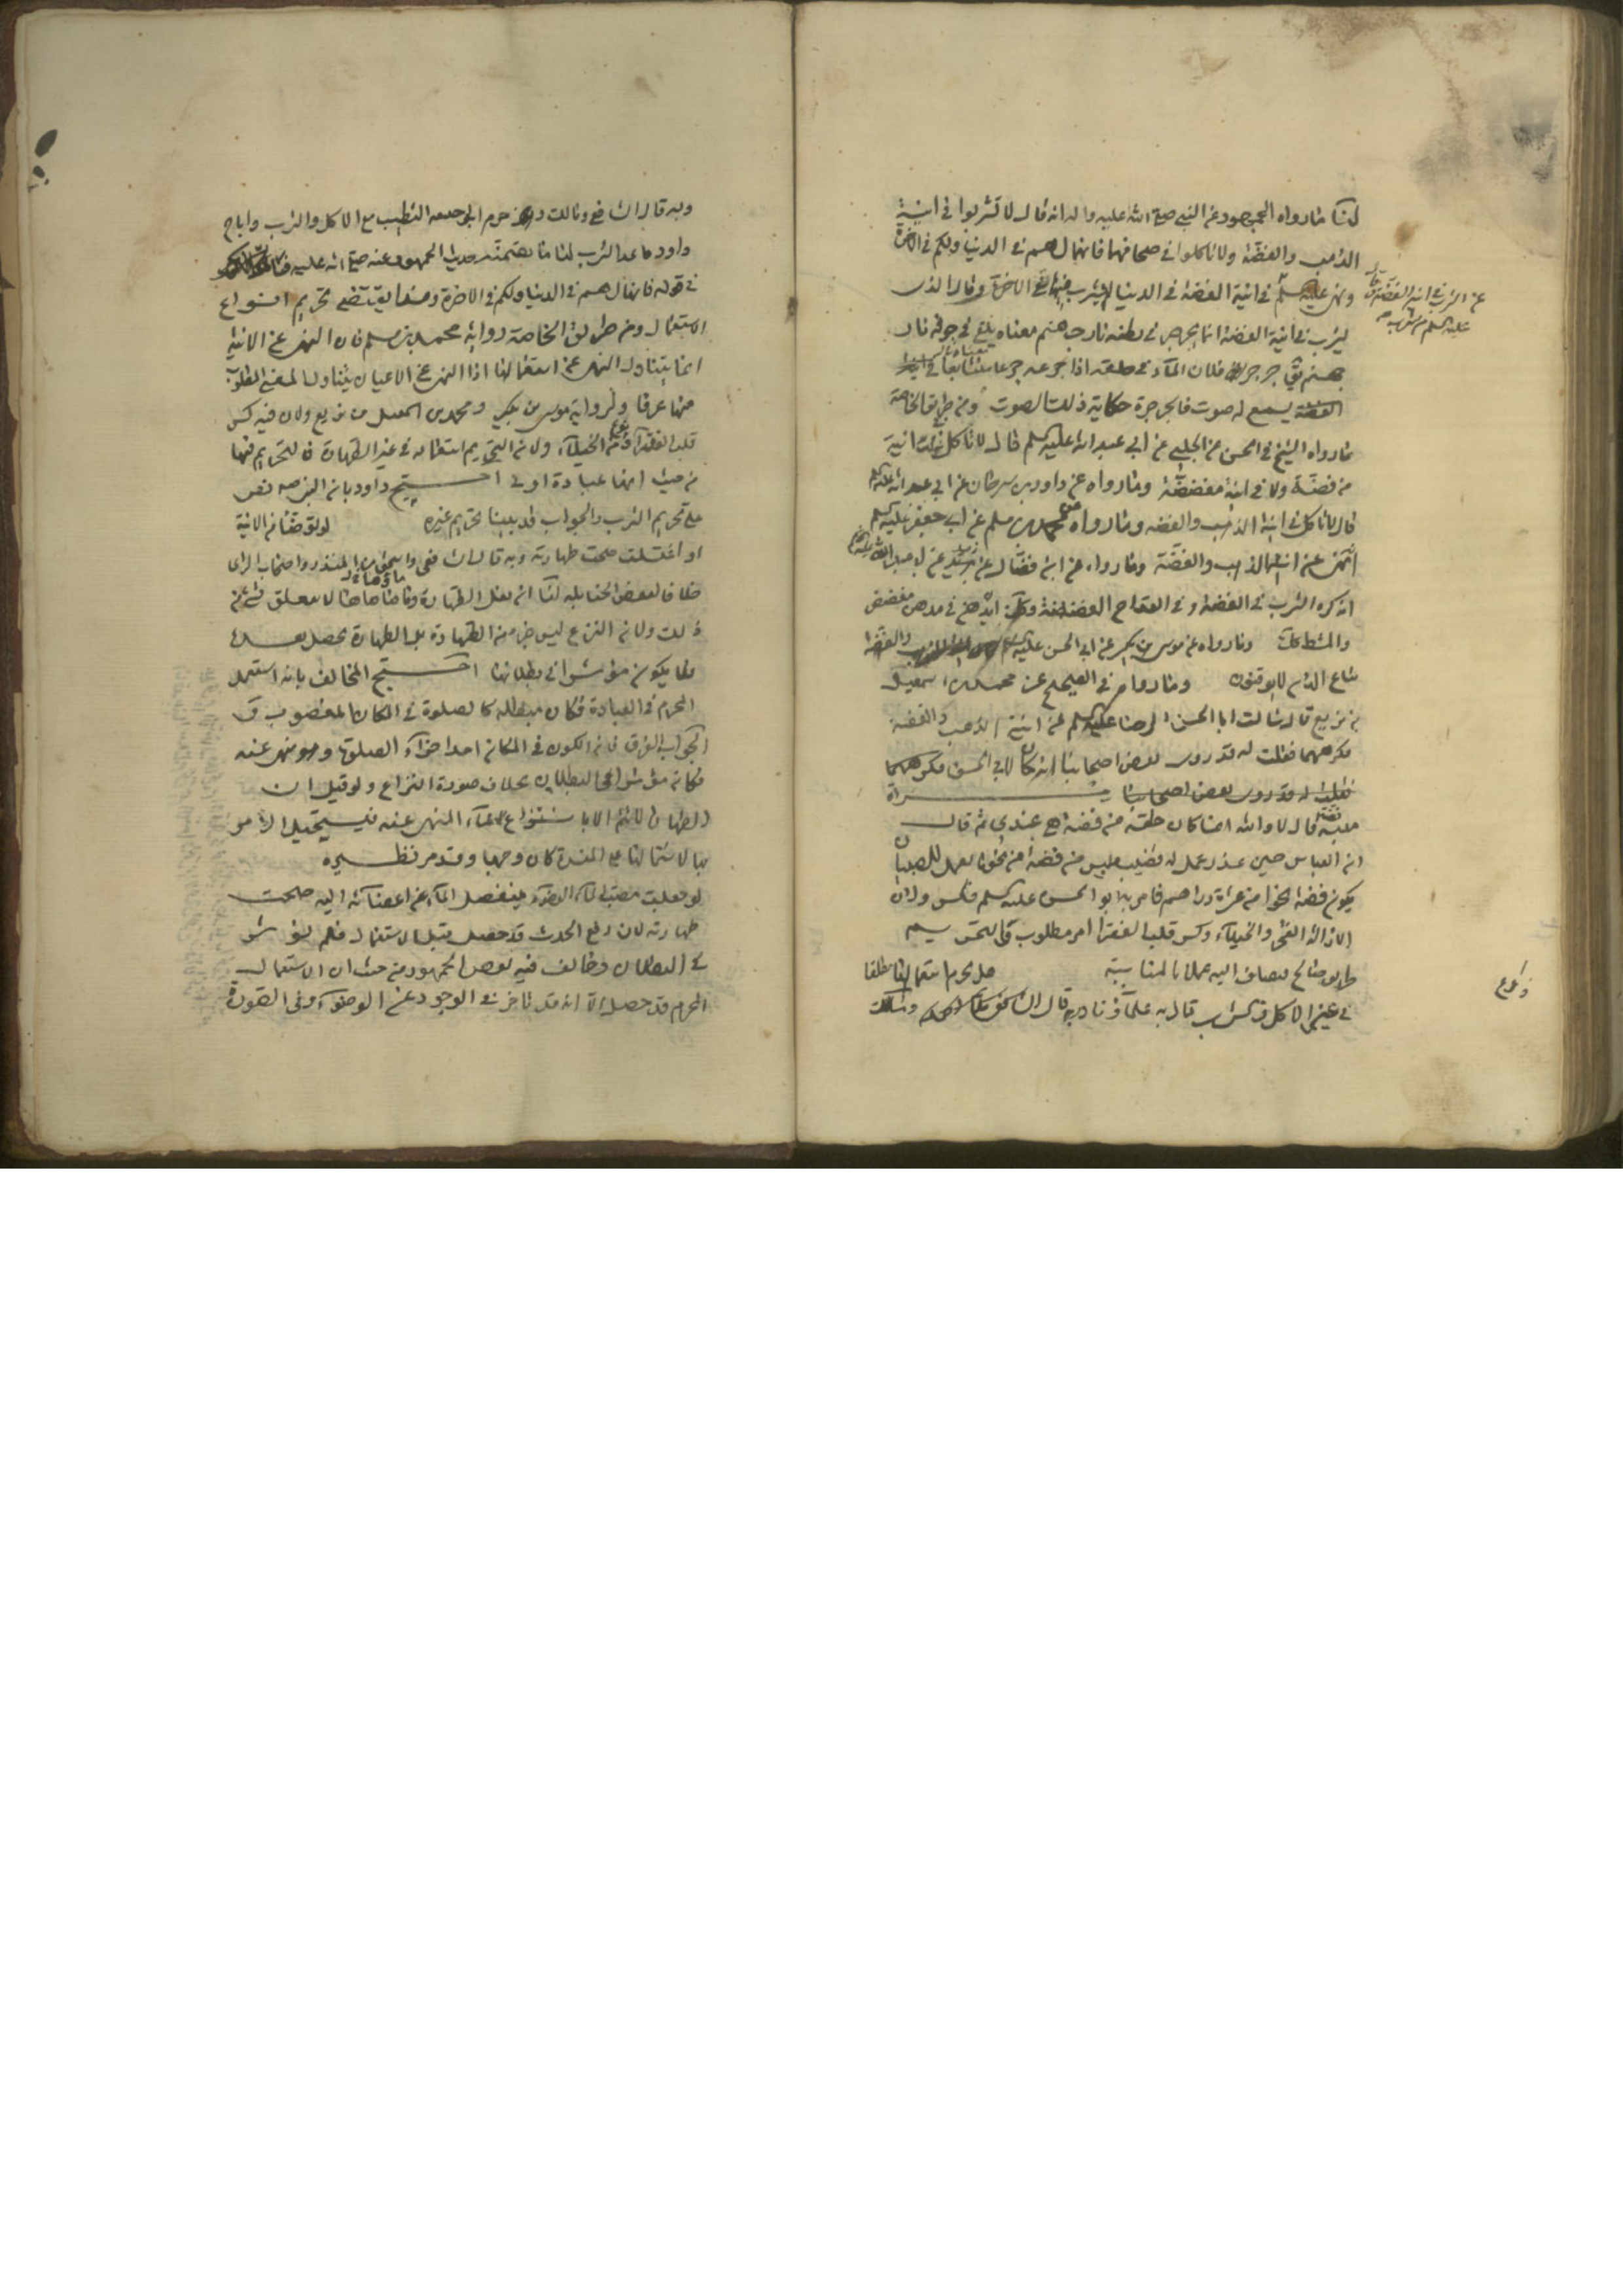 لنا ما رواه الجمهور عن النبي صلى الله عليه واله انه قال لا تشربوا في انية
الذهب والفضة ولا تاكلوا في صحافها فانها لهم في الدنيا ولكم في الاخرة
ونهى عليه السلم عن الشرب في انية الفضة في الدنيا لم يشرب فيها في الاخرة وقال الذي
يشرب في انية الفضة انما يجرجر في بطنه نار جهنم معناه يلقى في جوفه نار
جهنم يقال جرجر فلان الماء في حلقه اذا تجرعه جرعا متتابعا
يسمع له صوت فالجرجرة حكاية ذلك الصوت ومن طريق الخاصة
ما رواه الشيخ في الحسن عن الحلبي عن ابي عبد الله عليه السلم قال لا تاكل في انية
من فضة ولا في انية مفضضة وما رواه عن داود بن سرحان عن ابي عبد الله عليه السلم
قال لا تاكل في انية الذهب والفضة وما رواه عن محمد بن مسلم عن ابي جعفر عليه السلم
انه نهى عن انية الذهب والفضة وما رواه عن ابن فضال عن بريد عن ابي عبد الله عليه السلم
انه كره الشرب في الفضة وفي القداح المفضضة وكذلك ان يدهن في مدهن مفضض
والمشط كذلك وما رواه عن موسى بن بكر عن ابي الحسن عليه السلم انية الذهب والفضة
متاع الذين لا يوقنون وما رواه في الصحيح عن محمد بن اسمعيل
بن بزيع قال سالت ابا الحسن الرضا عليه السلم عن انية الذهب والفضة
فكرههما فقلت له قد روى بعض اصحابنا انه كان لابي الحسن
مراة
ملبسة فضة قال لا والله انما كان حلقة من فضة هي عندي ثم قال
ان العباس حين عذر عمل له قضيب ملبس من فضة من نحو ما يعمل للصبيان
يكون فضة نحوا من عشرة دراهم فامر به ابو الحسن عليه السلم فكسر ولان
ازالة الفخر والخيلاء وكسر قلب الفقراء امر مطلوب والتحريم
طريق صالح فيضاف اليه عملا بالمناسبة هل يحرم استعمالها مطلقا
في غير الاكل والشرب قال به علماؤنا وبه قال الشافعي ومالك
وبه قال الشافعي ومالك وحرم ابو حنيفة التطيب مع الاكل والشرب واباح
داود ما عدا الشرب لنا ما تضمنه حديث الجمهور عنه صلى الله عليه
في قوله فانها لهم في الدنيا ولكم في الاخرة وهذا يقتضي تحريم انواع
الاستعمال ومن طريق الخاصة رواية محمد بن مسلم فان النهي عن الانية
انما يتناول النهي عن استعمالها اذ النهي عن الاعيان يتناول المعنى المطلوب
منها عرفا ولرواية موسى بن بكر ومحمد بن اسمعيل بن بزيع ولان فيه كسر
قلب الفقراء ونوع الخيلاء ولان التحريم استعماله في غير الطهارة فالتحريم فيها
من حيث انها عبادة اولى احتج داود بان النبي صلى الله عليه نص
على تحريم الشرب والجواب قد بينا تحريم غيره لو توضا من الانية
او اغتسلت صحت طهارته وبه قال الشافعي واسحق وابن المنذر واصحاب الراى
خلافا لبعض الحنابلة لنا ان فعل الطهارة وماءها لا يتعلق بشيء من
ذلك ولان النزع ليس جزءا من الطهارة بل الطهارة يحصل بعده
فلا يكون مؤثرا في بطلانها احتج المخالف بانه استعمل
المحرم في العبادة فكان مبطلا كالصلوة في المكان المغصوب و
الجواب الفرق فان الكون في المكان احد اجزاء الصلوة وهو منهي عنه
فكان مؤثرا في البطلان بخلاف صورة النزاع ولو قيل ان
الطهارة لا يتم الا بانتزاع الماء المنهي عنه فيستحيل الامر
بها لاشتمالها على المفسدة كان وجها وقد مر نظيره
لو جعلت مصبا لماء الوضوء ينفصل الماء عن اعضائه اليه صحت
طهارته لان رفع الحدث قد حصل قبل الاستعمال فلم يؤثر
في البطلان وخالف فيه بعض الجمهور من حيث ان الاستعمال
المحرم قد حصل الا انه قد تاخر في الوجود عن الوضوء وفي الصورة